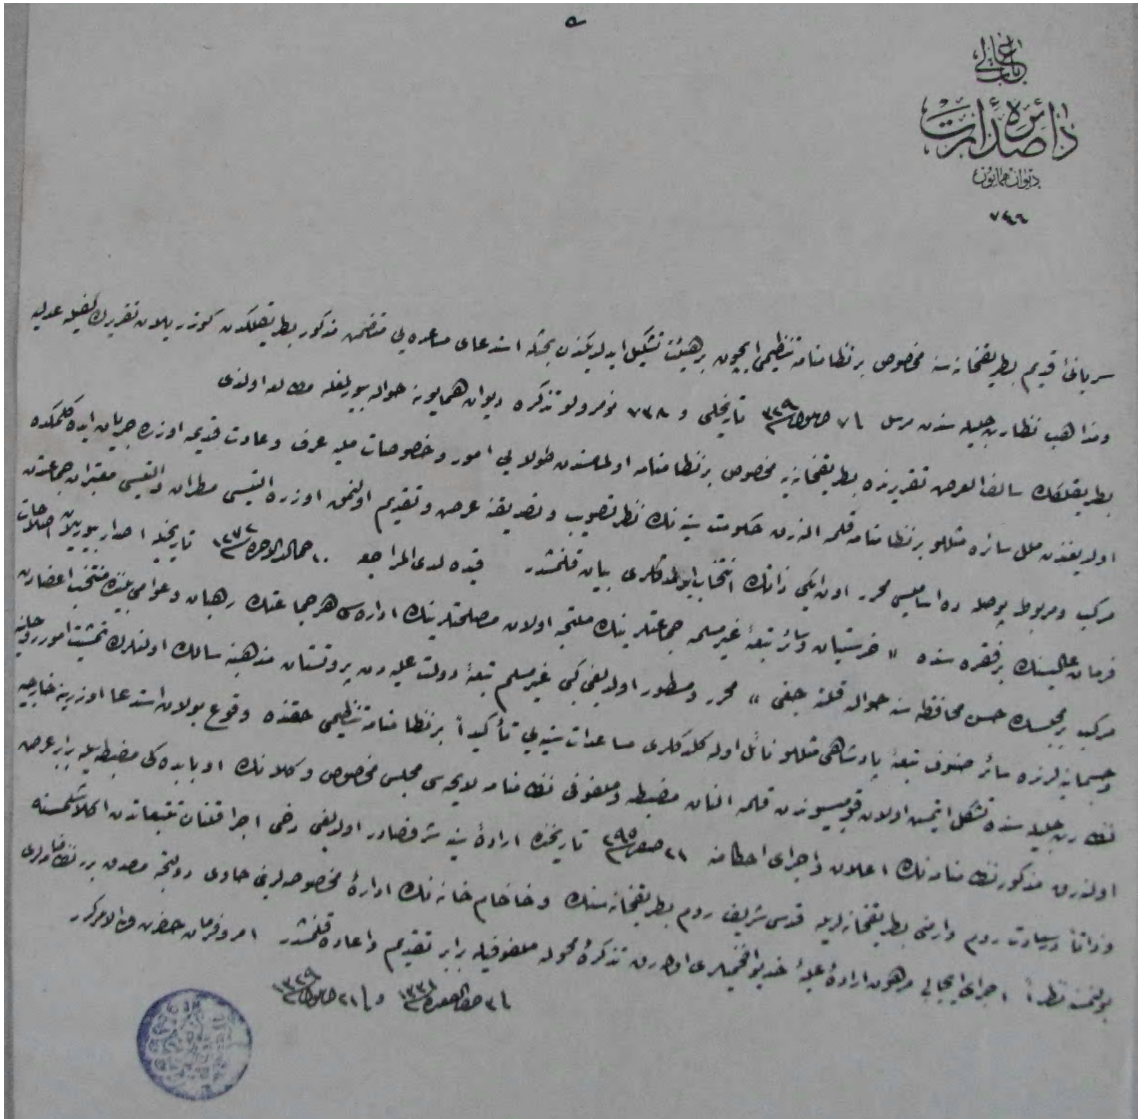 باب عالی
دائرهٔ صدارت
دیوان همایون
٧٤٦
سریانی قدیم بطریقخانه سنه مخصوص بر نظامنامه تنظیمی ایچون بر هیئت تشکیل ایدلدیکندن بحثله استدعای مساعده یی متضمن مذکور بطریقلکدن کوندریلان تقریرک لفیله عدلیه
ومذاهب نظارت جلیله سندن مرسل تاریخلی و ٧٣٨ نومرولو تذکره دیوان همایونه حواله بیوریلغله مطالعه اولندی
بطریقلغك سالف العرض تقریرنده بطریقخانه یه مخصوص بر نظامنامه اولمامسندن طولایی امور و خصوصات ملیه عرف وعادت قدیمه اوزره جریان ایده کلمکده
اولدیغندن ملل سائره مثللو بر نظامنامه قلمه النه رق حکومت سنیه نك نظر تصویب و تصدیقنه عرض و تقدیم اولنمق اوزره التیسی مطران والتیسی معتبران جماعتدن
مرکب ومربوط پوصله ده اسامیسی محرر اون ایکی ذاتك انتخاب ایدلدکلری بیان قلنمشدر قیده لدی المراجعه تاریخیله اصدار بیوریلان اصلاحات
فرمان عالیسنك بر فقره سنده « خرستیان وسائر تبعهٔ غیر مسلمه جماعتلرینك ملتجه اولان مصلحتلرینك اداره سی هر جماعتك رهبان وعوامی بیننده منتخب اعضادن
مرکب بر مجلسك حسن محافظه سنه حواله قلنه جقی » محرر ومسطور اولدیغی کبی غیر مسلم تبعهٔ دولت علیه دن پروتستان مذهبنه سالك اولنلرك تمشیت امور روحانیه
وجسمانیه لرنده سائر صنوف تبعهٔ پادشاهی مثللو نائل اوله کلدکلری مساعدات سنیه یی تأکیداً بر نظامنامه تنظیمی حقنده وقوع بولان استدعا اوزرینه خارجیه
نظارت جلیله سنده تشکل ایتمش اولان قومیسیوندن قلمه النان مضبطه وملفوفی نظامنامه لایحه سی مجلس مخصوص وکلانك اوبابده کی مضبطه سیله برابر عرض
اولنه رق مذکور نظامنامه نك اعلان واجرای احکامنه تاریخنده ارادهٔ سنیه شرفصادر اولدیغی دخی اجرا قلنان تتبعاتدن اکلاشلمسنه
وذاتاً درسعادت روم وارمنی بطریقخانه لریله قدس شریف روم بطریقخانه سنك وخاخام خانه نك ادارهٔ مخصوصه لرینی حاوی مصدق برر نظامنامه لری
بولنمسنه نظراً اجرای ایجابی مرهون ارادهٔ علیهٔ خدیو افخمیلری اوله رق تذکرهٔ محوله ملفوفیله برابر تقدیم واعاده قلنمشدر امر وفرمان حضرت من له الامرکدر